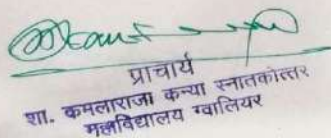 प्राचार्य
शा. कमलाराजा कन्या स्नातकोत्तर
महाविद्यालय ग्वालियर